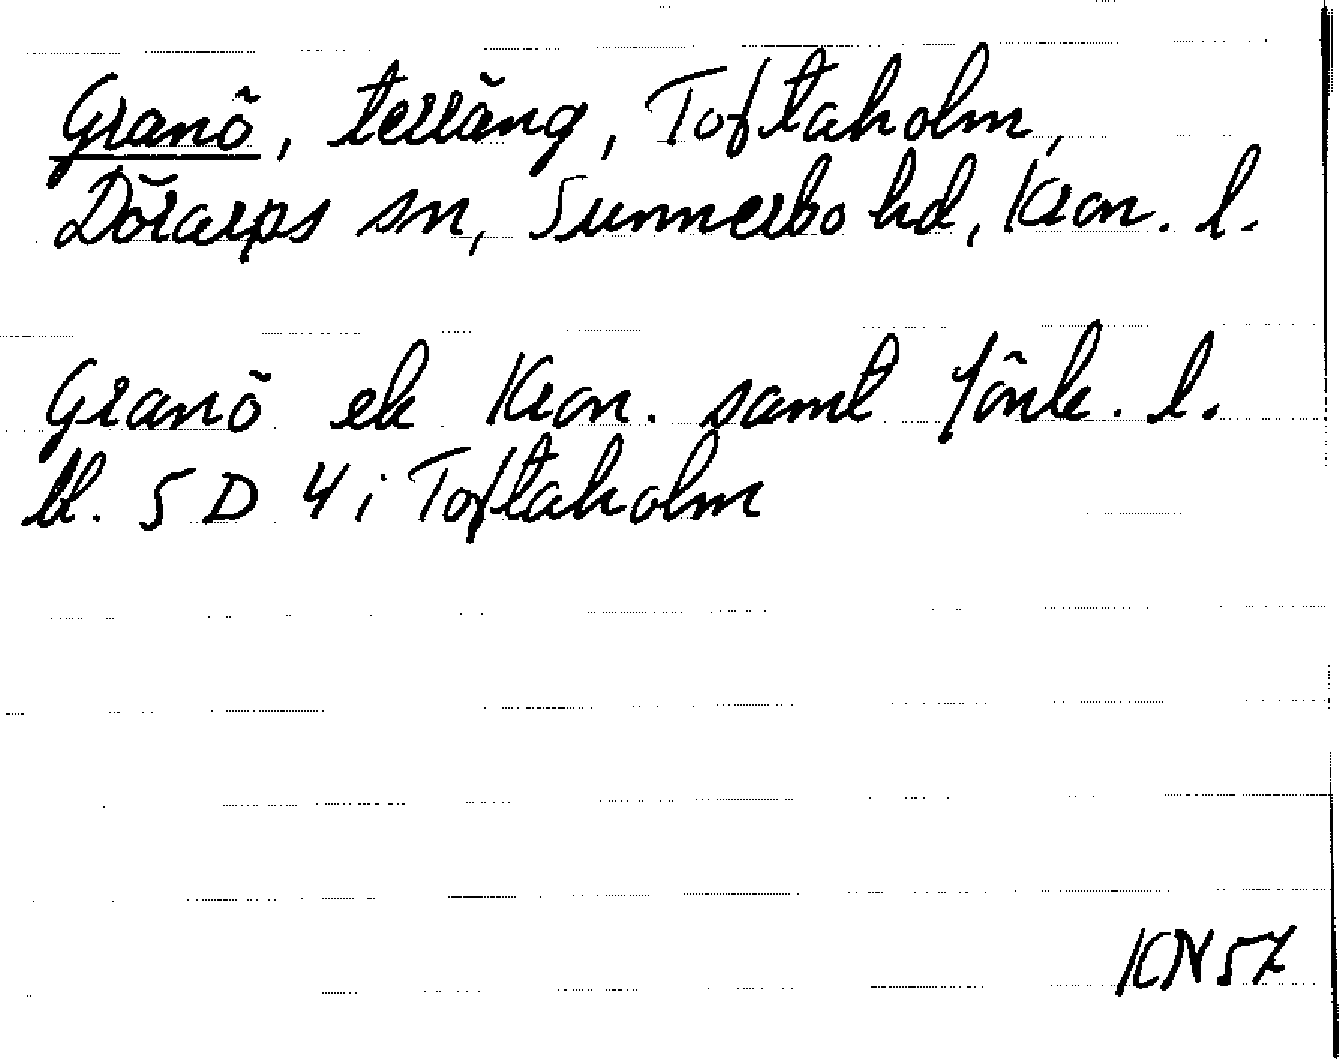 Granö, terräng, Toftaholm,
Dörarps sn, Sunnerbo hd, Kron. l.
Granö ek Kron. samt Jönk. l.
bl. 5 D 4 i Toftaholm
KN 57